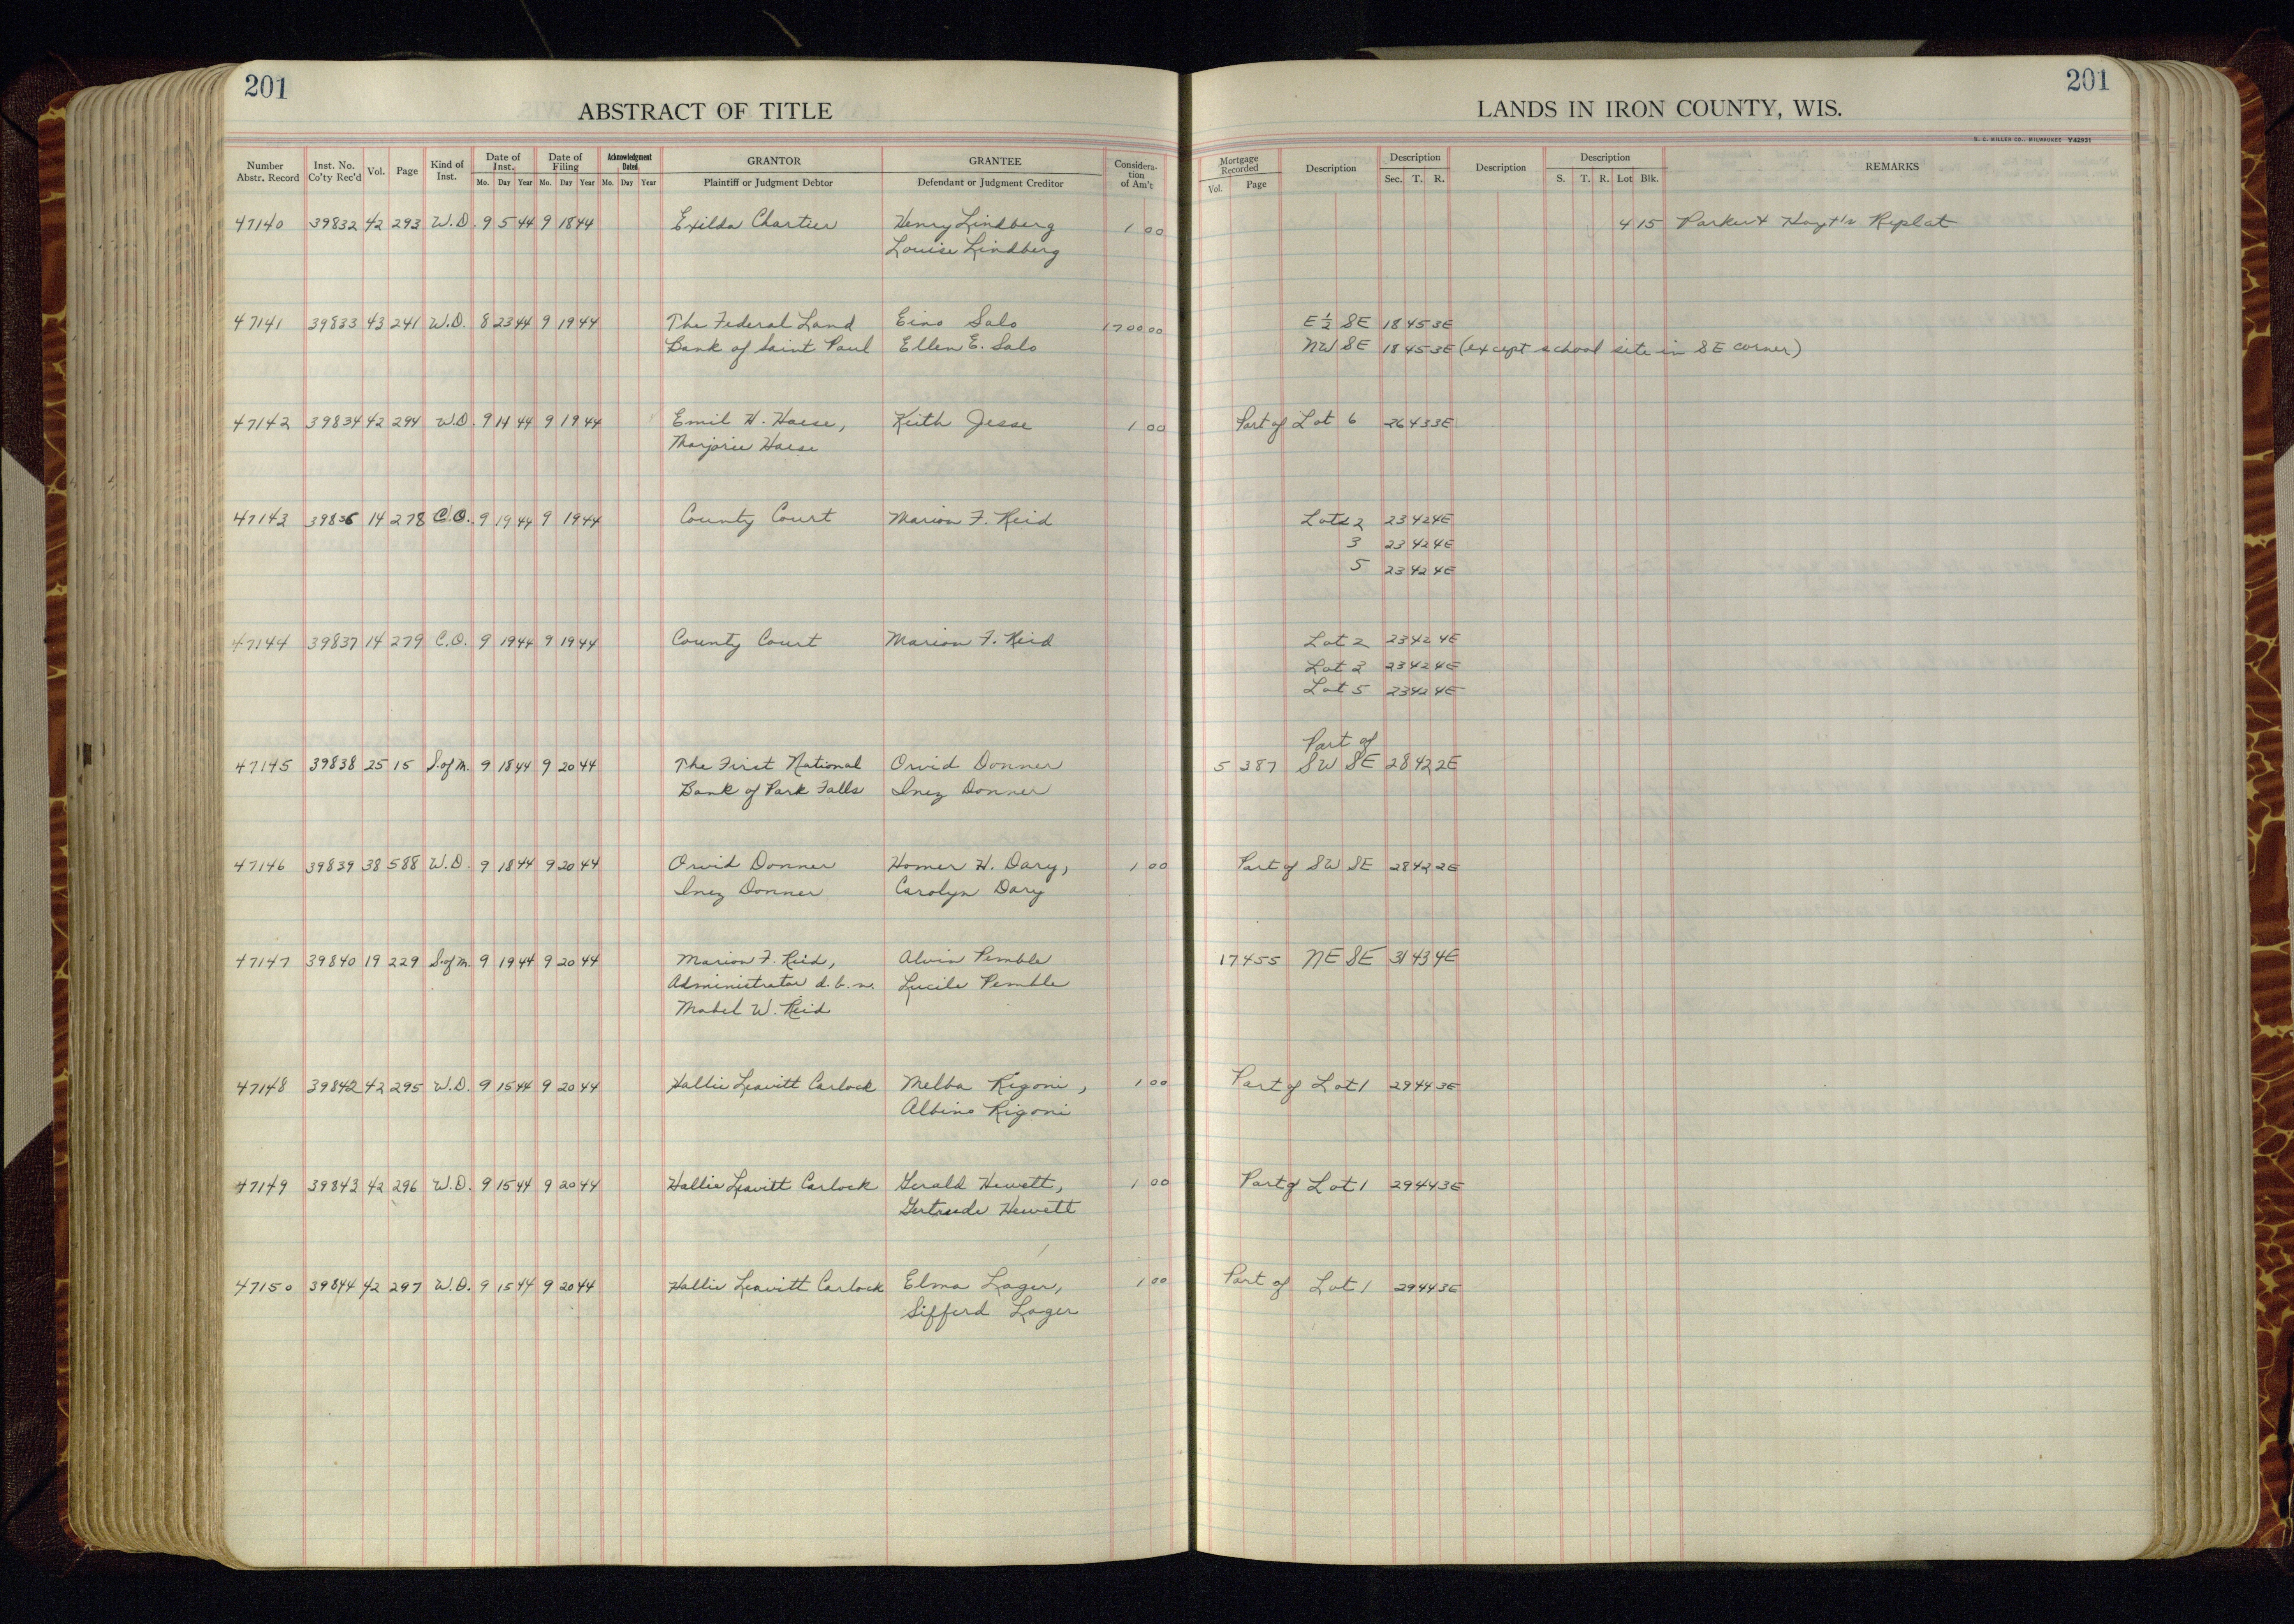 201
201
ABSTRACT OF TITLE
LANDS IN IRON COUNTY, WIS.
H. C. MILLER CO., MILWAUKEE Y42931
Number Abstr. Record Inst. No. Co'ty Rec'd Vol. Page Kind of Inst. Date of Inst. Mo. Day Year Date of Filing Mo. Day Year Acknowledgment Dated Mo. Day Year GRANTOR Plaintiff or Judgment Debtor GRANTEE Defendant or Judgment Creditor Consideration of Am't Mortgage Recorded Vol. Page Description Description Sec. T. R. Description Description S. T. R. Lot Blk. REMARKS
47140 39832 42 293 W.D. 9 5 44 9 18 44 Exilda Chartier Henry Lindberg 1 00 4 15 Parker & Hoyt's Replat
Louise Lindberg
47141 39833 43 241 W.D. 8 23 44 9 19 44 The Federal Land Eino Salo 1700 00 E ½ SE 18 45 3E
Bank of Saint Paul Ellen E. Salo NW SE 18 45 3E (except school site in SE corner)
47142 39834 42 294 W.D. 9 14 44 9 19 44 Emil H. Haese, Keith Jesse 1 00 Part of Lot 6 26 43 3E
Marjorie Haese
47143 39836 14 278 C.O. 9 19 44 9 19 44 County Court Marion F. Reid Lots 2 23 42 4E
3 23 42 4E
5 23 42 4E
47144 39837 14 279 C.O. 9 19 44 9 19 44 County Court Marion F. Reid Lot 2 23 42 4E
Lot 3 23 42 4E
Lot 5 23 42 4E
Part of
47145 39838 25 15 S. of M. 9 18 44 9 20 44 The First National Orvid Donner 5 387 SW SE 28 42 2E
Bank of Park Falls Inez Donner
47146 39839 38 588 W.D. 9 18 44 9 20 44 Orvid Donner Homer H. Dary, 1 00 Part of SW SE 28 42 2E
Inez Donner Carolyn Dary
47147 39840 19 229 S. of M. 9 19 44 9 20 44 Marion F. Reid, Alvin Pemble 17 455 NE SE 31 43 4E
Administrator d.b.n. Lucile Pemble
Mabel W. Reid
47148 39842 42 295 W.D. 9 15 44 9 20 44 Hallie Leavitt Carlock Melba Rigoni, 1 00 Part of Lot 1 29 44 3E
Albino Rigoni
47149 39843 42 296 W.D. 9 15 44 9 20 44 Hallie Leavitt Carlock Gerald Hewett, 1 00 Part of Lot 1 29 44 3E
Gertrude Hewett
47150 39844 42 297 W.D. 9 15 44 9 20 44 Hallie Leavitt Carlock Elma Lager, 1 00 Part of Lot 1 29 44 3E
Sifferd Lager